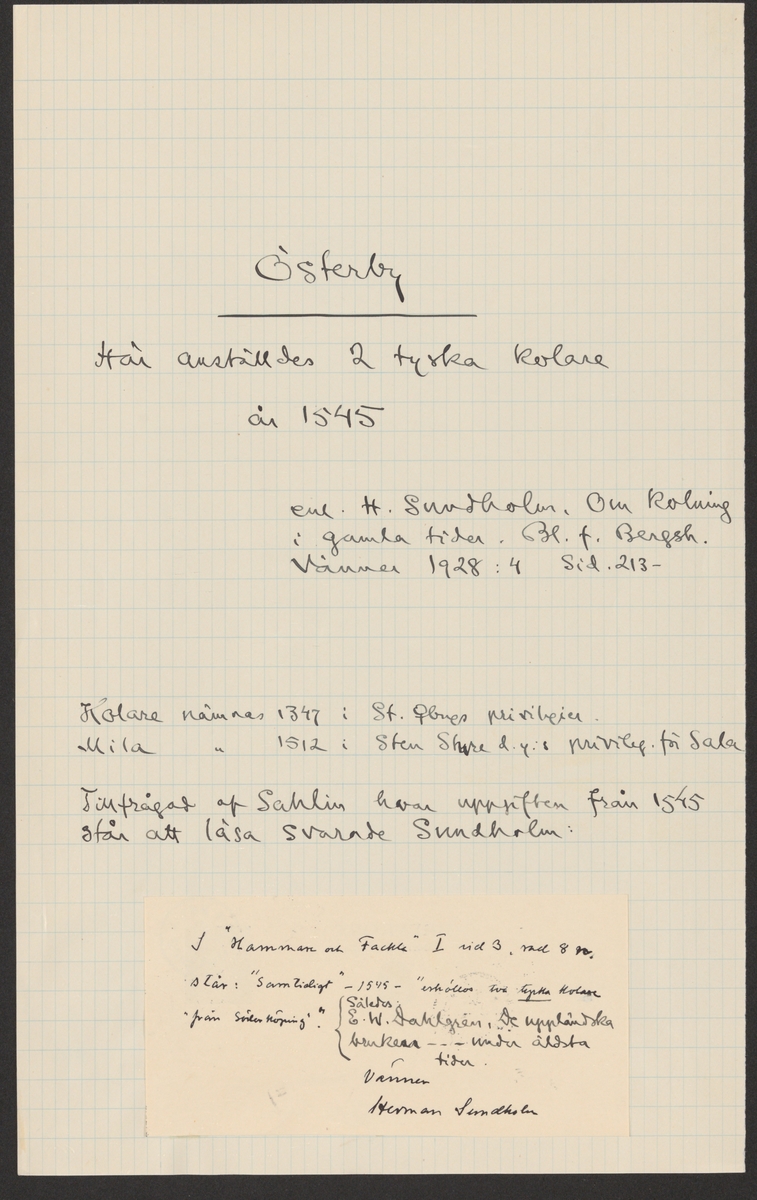 Österby
Här anställdes 2 tyska kolare
år 1545
enl. H. Sundholm, Om kolning
i gamla tider. Bl. f. Bergsh.
Vänner 1928:4 Sid. 213-
Kolare nämnas 1347 i St. privilegier.
Mila " 1512 i Sten Sture d.y:s privileg. för Sala
Tillfrågad af Sahlin hvar uppgiften från 1545
står att läsa svarade Sundholm:
I "Hammare och Fackla" I sid 3, rad 8 n.
står: "Samtidigt" - 1545 - "erhöllos två tyska kolare
"från Söderköping".
Således:
E. W. Dahlgren, De uppländska
bruken --- under äldsta
tider.
Vännen
Herman Sundholm